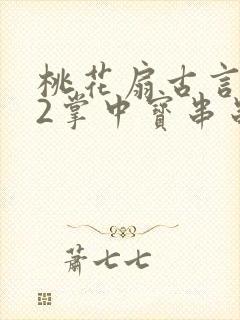 桃花扇古言
2掌中寳串
蕭七七